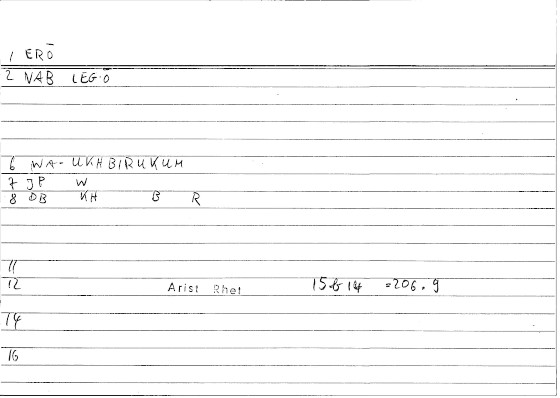 1 ERŌ
2 NAB LEGŌ
6 WA-UKHBIRUKUM
7 JP W
8 DB KH B R
11
12 Arist Rhet 15b14 =206.9
14
16